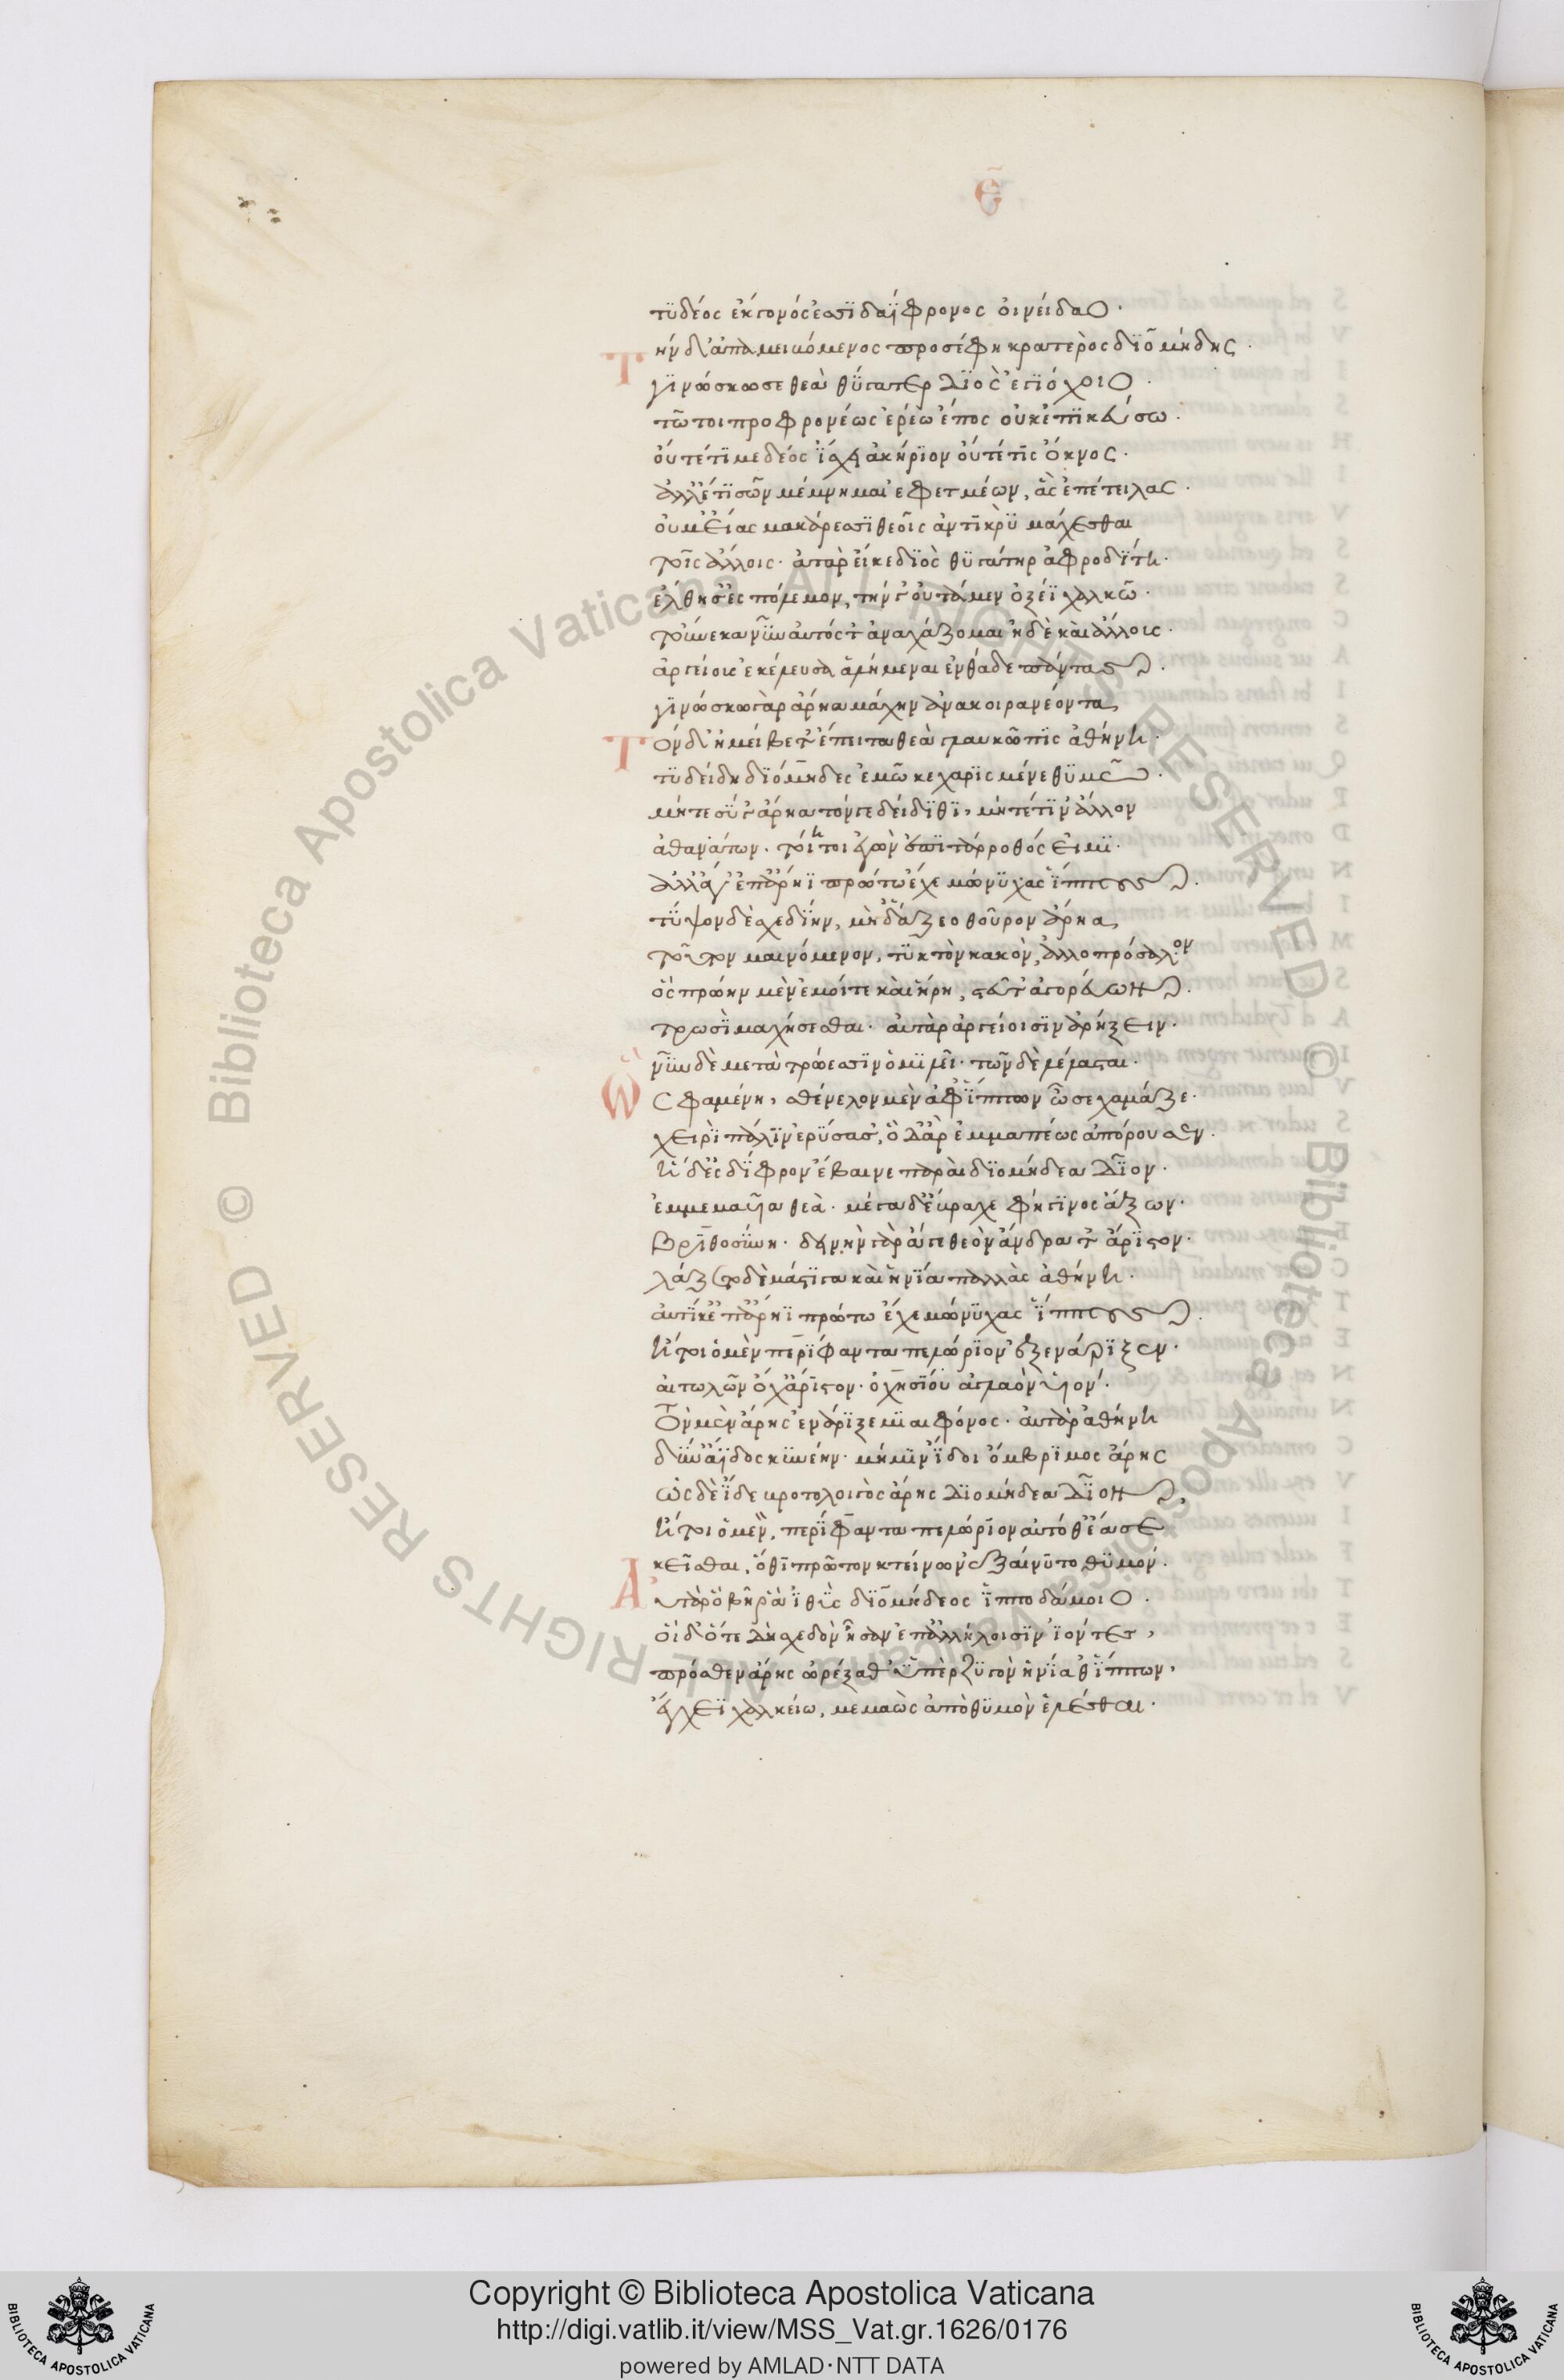 Ε̄
τϋδέος ἔκγονός ἐσσι δαΐφρονος ὀινείδαο·
Τὴν δ' ἀπαμειβόμενος προσέφη κρατερὸς διομήδης·
γινώσκω σε θεὰ θύγατερ διὸς ἀιγιόχοιο·
τῶ τοι προφρονέως ἐρέω ἔπος οὐκ ἐπικεύσω·
οὔτέ τί με δέος ἴσχει ἀκήριον οὔτέ τις ὄκνος·
ἀλλ' ἔτι σῶν μέμνημαι ἐφετμέων, ἃς ἐπέτειλας·
οὔ μ' εἴας μακάρεσσι θεοῖς ἀντικρὺ μάχεσθαι
τοῖς ἄλλοις· ἀτὰρ εἴ κε διὸς θυγάτηρ ἀφροδίτη·
ἔλθησ' ἐς πόλεμον, τήν γ' οὐτάμεν ὀξέϊ χαλκῶ·
τοὔνεκα νῦν αὐτός τ' ἀναχάζομαι ἠδὲ καὶ ἄλλους·
ἀργείους ἐκέλευσα ἀλήμεναι ἐνθάδε πάντας·
γινώσκω γὰρ ἄρηα μάχην ἀνακοιρανέοντα
Τὸν δ' ἠμείβετ' ἔπειτα θεὰ γλαυκῶπις ἀθήνη·
τυδείδη διόμηδες ἐμῶ κεχαρισμένε θυμῶ·
μήτε σύ γ' ἄρηα τόνγε δείδιθι, μήτέ τιν' ἄλλον
ἀθανάτων. τοίη τοι ἐγὼν ἐπιτάρροθός εἰμι·
ἀλλ' ἄγ' ἐπ' ἄρηϊ πρώτω ἔχε μώνυχας ἵππους·
τύψον δὲ σχεδίην, μὴ δ' ἅζεο θοῦρον ἄρηα
τοῦτον μαινόμενον, τυκτὸν κακὸν, ἀλλοπρόσαλλον
ὃς πρώην μὲν ἐμοί τε καὶ ἥρη, στεῦτ' ἀγορεύων·
τρωσὶ μαχήσεσθαι· ἀυτὰρ ἀργείοισιν ἀρήξειν·
νῦν δὲ μετὰ τρώεσσιν ὁμιλεῖ· τῶν δὲ λέλασται·
Ὣς φαμένη, σθένελον μὲν ἀφ' ἵππων ὦσε χαμάζε·
χειρὶ πάλιν ἐρύσασ', ὃ δ' ἄρ' ἐμμαπέως ἀπόρουσεν·
ἡ δ' ἐς δίφρον ἔβαινε παραὶ διομήδεα δῖον·
ἐμμεμαυῖα θεὰ· μέγα δ' ἔβραχε φήγινος ἄξων·
βριθοσύνη· δεινὴν γὰρ ἄγε θεὸν ἄνδρα τ' ἄριστον·
λάζετο δὲ μάστιγα καὶ ἡνία παλλὰς ἀθήνη·
ἀυτίκ' ἐπ' ἄρηϊ πρώτω ἔχε μώνυχας ἵππους·
ἤτοι ὁ μὲν περίφαντα πελώριον ἐξενάριξεν·
ἀιτωλῶν ὄχ' ἄριστον· ὀχησίου ἀγλαὸν υἱόν·
Τὸν μὲν ἄρης ἐνάριζε μιαιφόνος· ἀυτὰρ ἀθήνη
δῦν' ἄϊδος κυνέην· μή μιν ἴδοι ὄμβριμος ἄρης
ὡς δὲ ἴδε βροτολοιγὸς ἄρης διομήδεα δῖον
ἤτοι ὁ μὲν, περίφαντα πελώριον αὐτόθ' ἔασε
κεῖσθαι, ὅθι πρῶτον κτείνων ἐξαίνυτο θυμόν·
Αὐτὰρ ὃ βῆ ῥ' ἰθὺς διομήδεος ἱπποδάμοιο·
ὁι δ' ὅτε δὴ σχεδὸν ἦσαν ἐπ' ἀλλήλοισιν ἰόντες,
πρόσθεν ἄρης ὠρέξαθ' ὑπὲρ ζυγὸν ἡνία θ' ἵππων,
ἔγχεϊ χαλκείω, μεμαὼς ἀπὸ θυμὸν ἑλέσθαι·
© Biblioteca Apostolica Vaticana ALL RIGHTS RESERVED © Biblioteca Apostolica Vaticana ALL RIGHTS RESERVED
Copyright © Biblioteca Apostolica Vaticana
http://digi.vatlib.it/view/MSS_Vat.gr.1626/0176
powered by AMLAD·NTT DATA
BIBLIOTECA APOSTOLICA VATICANA
BIBLIOTECA APOSTOLICA VATICANA